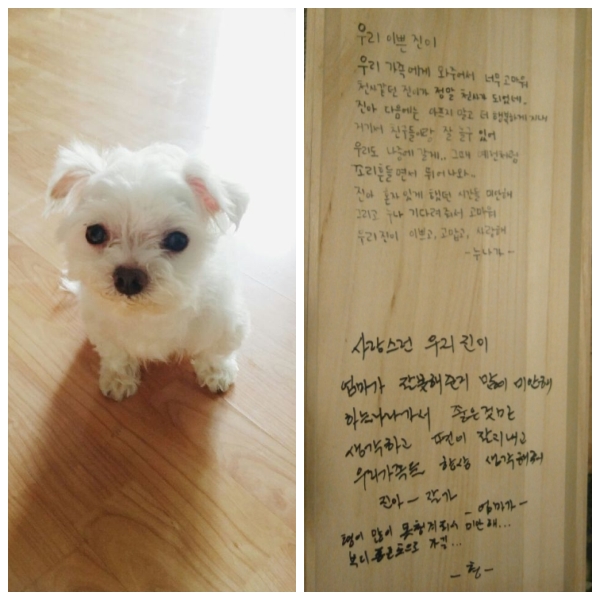 우리 이쁜 진이
우리 가족에게 와주어서 너무 고마워
천사같던 진이가 정말 천사가 되었네..
진아 다음에는 아프지 말고 더 행복하게 지내
거기서 친구들이랑 잘 놀구 있어
우리도 나중에 갈게.. 그때 예전처럼
꼬리흔들면서 뛰어나와..
진아 혼자 있게 했던 시간들 미안해
그리고 누나 기다려줘서 고마워
우리 진이 이쁘고, 고맙고, 사랑해
- 누나가 -
사랑스런 우리 진이
엄마가 잘못해준거 많이 미안해
하늘나라가서 좋은것만
생각하고 편이 잘지내고
우리가족도 항상 생각해줘
진아 - 잘가
- 엄마가 -
형이 많이 못챙겨줘서 미안해...
부디 좋은곳으로 가길...
- 형 -